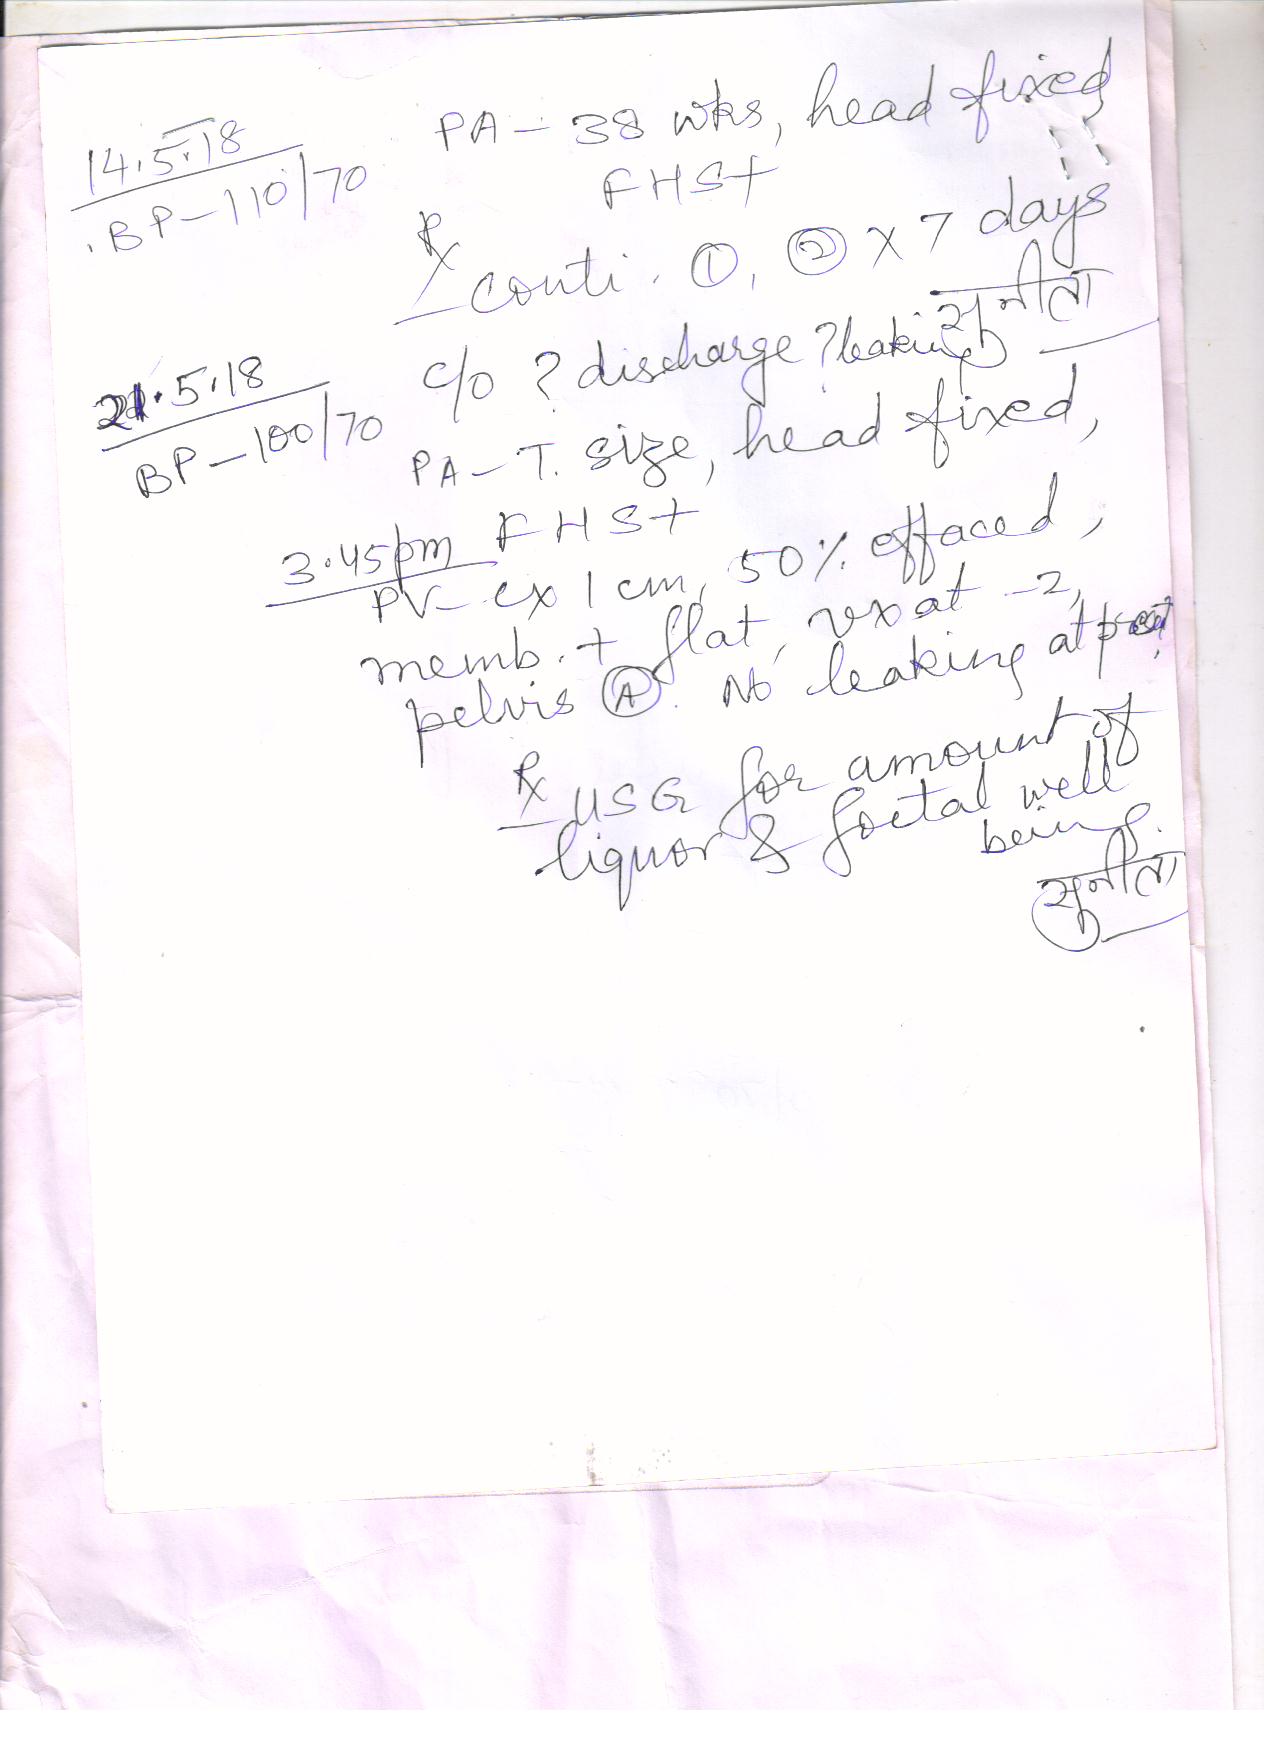 14.5.18
BP-110/70
PA - 38 wks, head fixed
FHS+
Rx conti. ①, ② x 7 days
सुनीता
21.5.18
BP-100/70
c/o ? discharge ? leaking
PA - T. size, head fixed,
FHS+
3.45pm
PV- cx 1 cm, 50% effaced,
memb. + flat, vx at -2,
pelvis Ⓐ. No leaking at present.
Rx USG for amount of
liquor & foetal well
being.
सुनीता